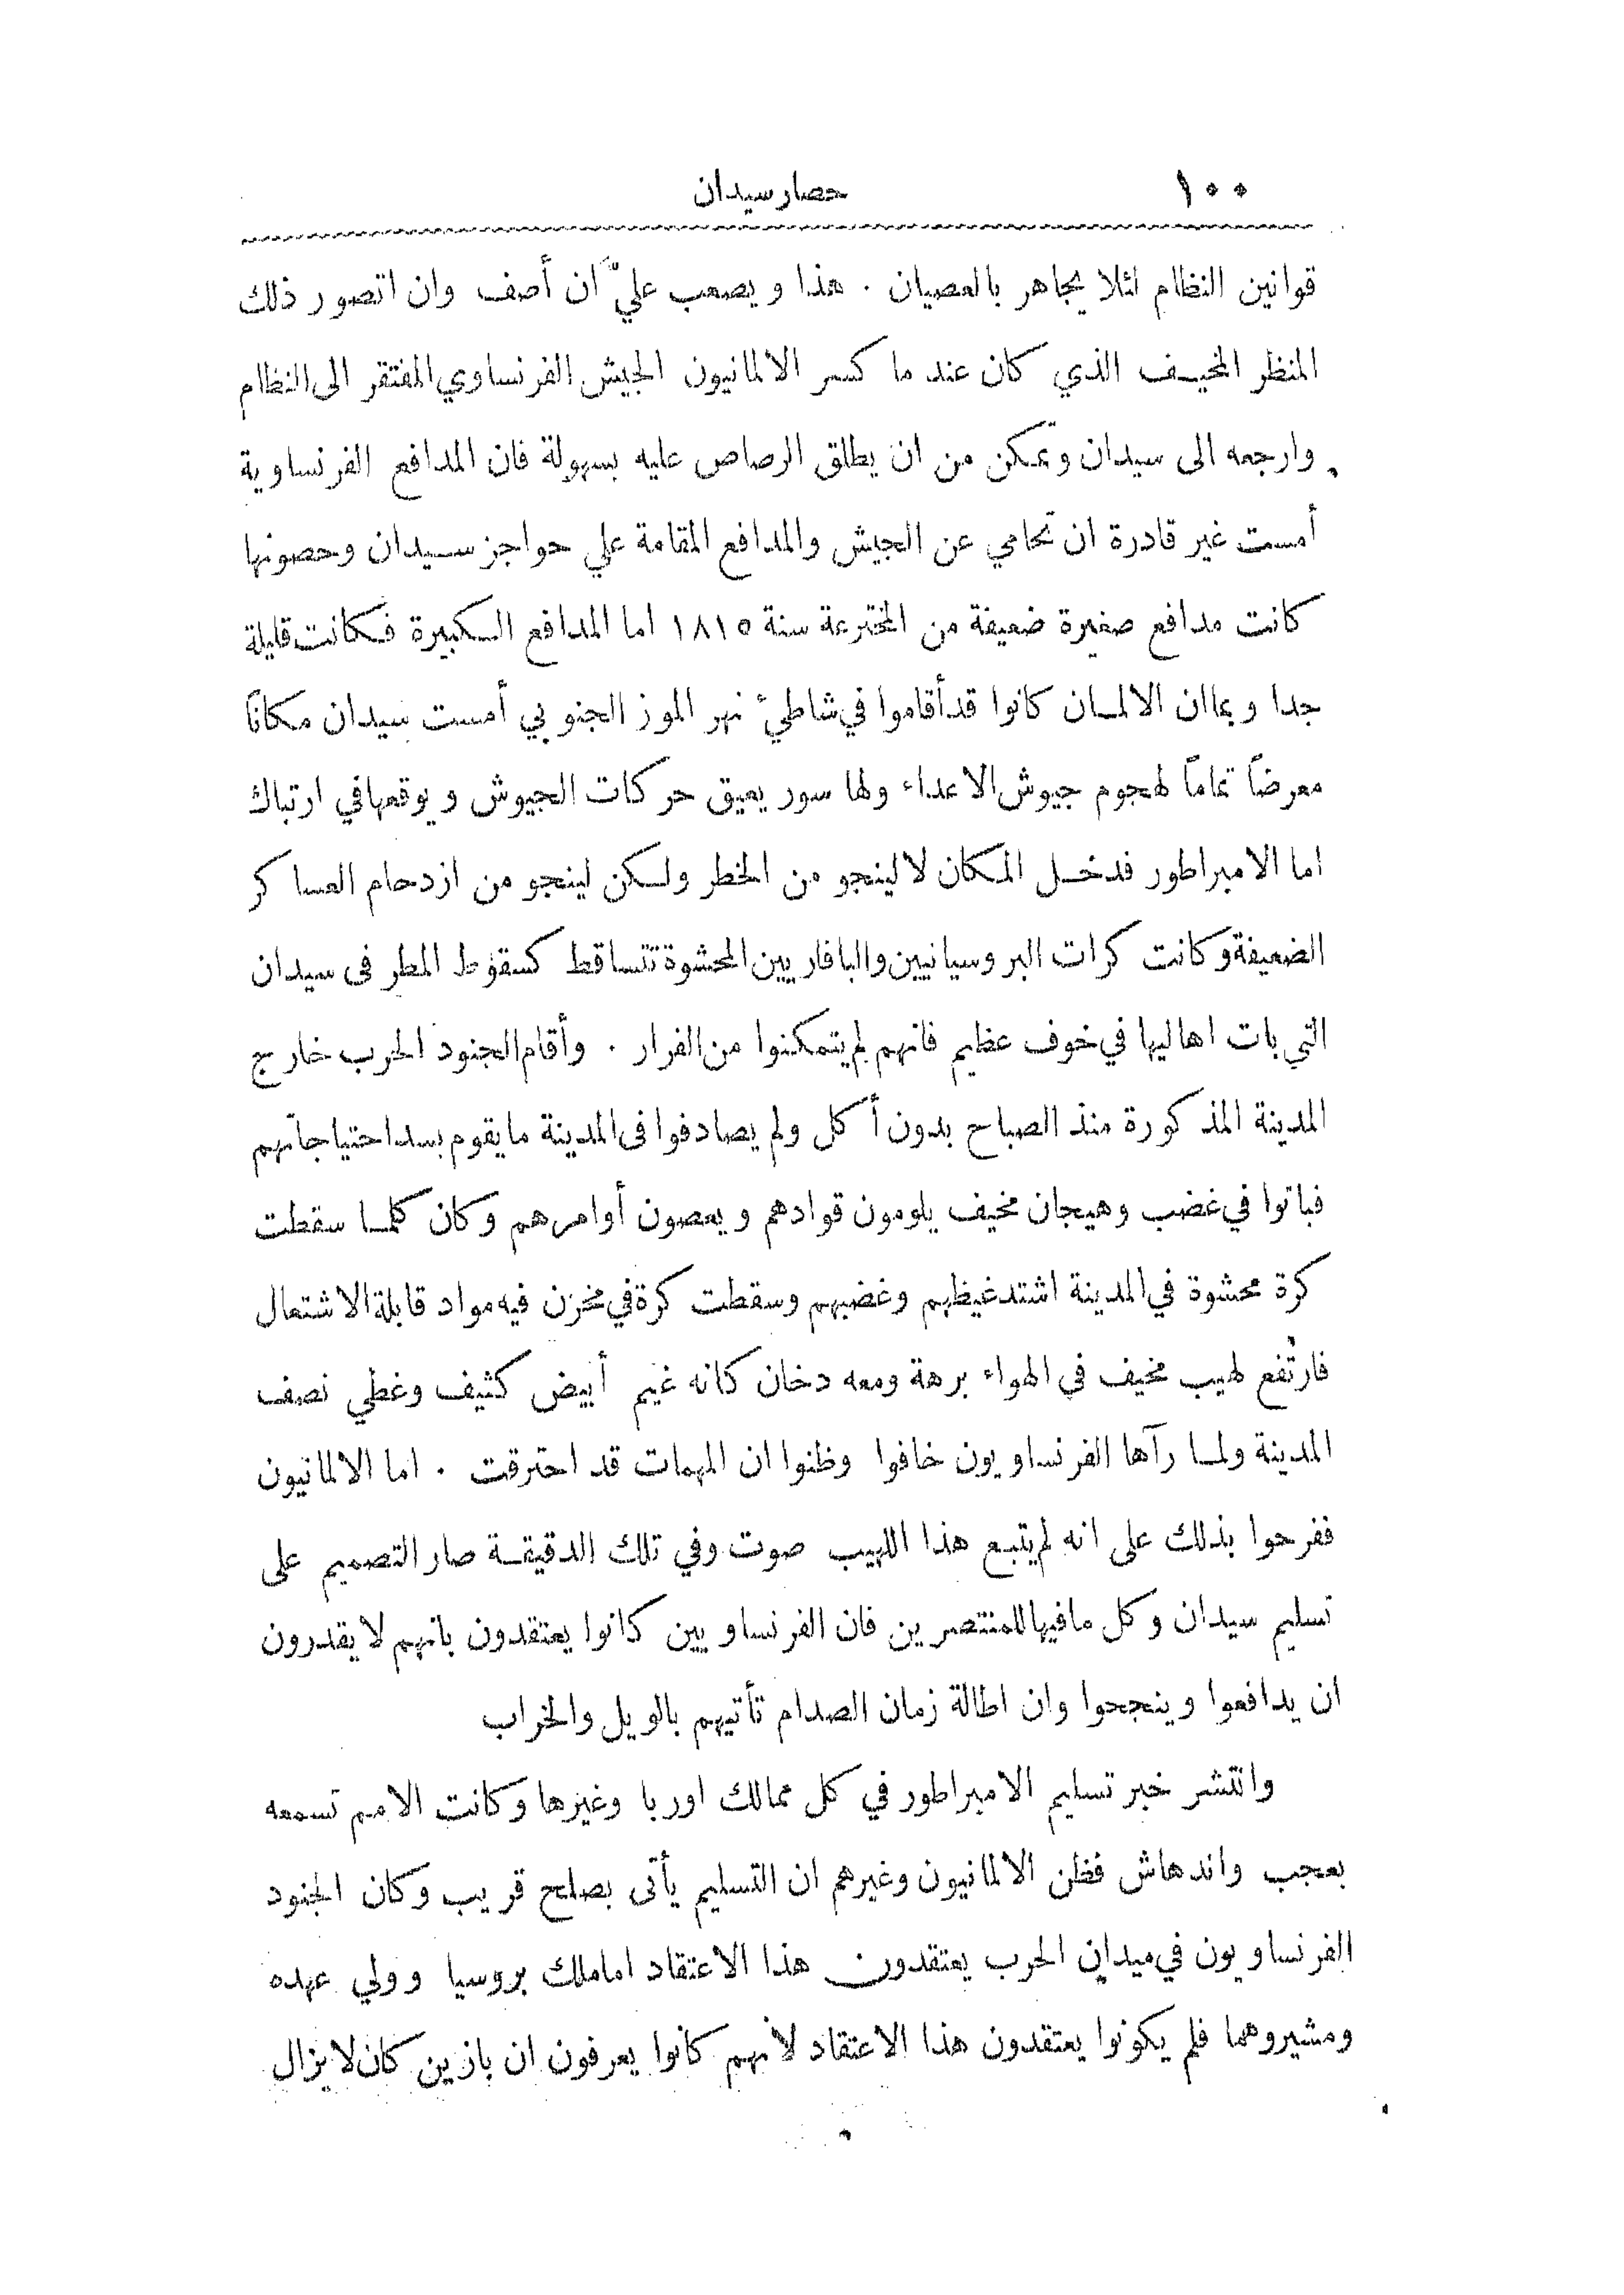 ١٠٠ حصار سيدان
قوانين النظام لئلا يجاهر بالعصيان . هذا ويصعب عليَّ ان أصف وان اتصور ذلك
المنظر المخيف الذي كان عند ما كسر الالمانيون الجيش الفرنساوي المفتقر الى النظام
وارجعه الى سيدان وتمكن من ان يطلق الرصاص عليه بسهولة فان المدافع الفرنساوية
أمست غير قادرة ان تحامي عن الجيش والمدافع المقامة علي حواجز سيدان وحصونها
كانت مدافع صغيرة ضعيفة من المخترعة سنة ١٨١٥ اما المدافع الكبيرة فكانت قليلة
جدا وبما ان الالمان كانوا قد أقاموا في شاطيء نهر الموز الجنوبي أمست سيدان مكاناً
معرضاً تماماً لهجوم جيوش الاعداء ولها سور يعيق حركات الجيوش ويوقعها في ارتباك
اما الامبراطور فدخل المكان لا لينجو من الخطر ولكن لينجو من ازدحام العساكر
الضعيفة وكانت كرات البروسيانيين والبافاريين المحشوة تتساقط كسقوط المطر فى سيدان
التي بات اهاليها في خوف عظيم فانهم لم يتمكنوا من الفرار . وأقام الجنود الحرب خارج
المدينة المذكورة منذ الصباح بدون أكل ولم يصادفوا فى المدينة ما يقوم بسد احتياجاتهم
فباتوا في غضب وهيجان مخيف يلومون قوادهم ويعصون أوامرهم وكان كلما سقطت
كرة محشوة في المدينة اشتد غيظهم وغضبهم وسقطت كرة في مخزن فيه مواد قابلة الاشتعال
فارتفع لهيب مخيف في الهواء برهة ومعه دخان كانه غيم أبيض كثيف وغطي نصف
المدينة ولما رآها الفرنساويون خافوا وظنوا ان المهمات قد احترقت . اما الالمانيون
ففرحوا بذلك على انه لم يتبع هذا اللهيب صوت وفي تلك الدقيقة صار التصميم على
تسليم سيدان وكل ما فيها للمنتصرين فان الفرنساويين كانوا يعتقدون بانهم لا يقدرون
ان يدافعوا وينجحوا وان اطالة زمان الصدام تأتيهم بالويل والخراب
وانتشر خبر تسليم الامبراطور في كل ممالك اوربا وغيرها وكانت الامم تسمعه
بعجب واندهاش فظن الالمانيون وغيرهم ان التسليم يأتى بصلح قريب وكان الجنود
الفرنساويون في ميدان الحرب يعتقدون هذا الاعتقاد اما ملك بروسيا وولي عهده
ومشيروهما فلم يكونوا يعتقدون هذا الاعتقاد لأنهم كانوا يعرفون ان بازين كان لا يزال